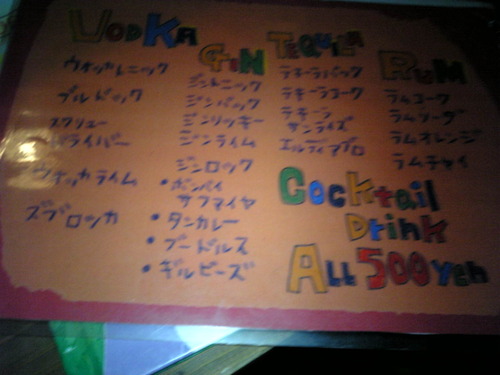 VODKA
ウオッカトニック
ブルドック
スクリュー
ドライバー
ウオッカライム
ズブロッカ
GIN
ジントニック
ジンバック
ジンリッキー
ジンライム
ジンロック
・ボンベイ
サファイヤ
・タンカレー
・ブードルス
・ギルビーズ
TEQUILA
テキーラバック
テキーラコーク
テキーラ
サンライズ
エルディアブロ
RUM
ラムコーク
ラムソーダ
ラムオレンジ
ラムチャイ
Cocktail
Drink
ALL 500 Yen